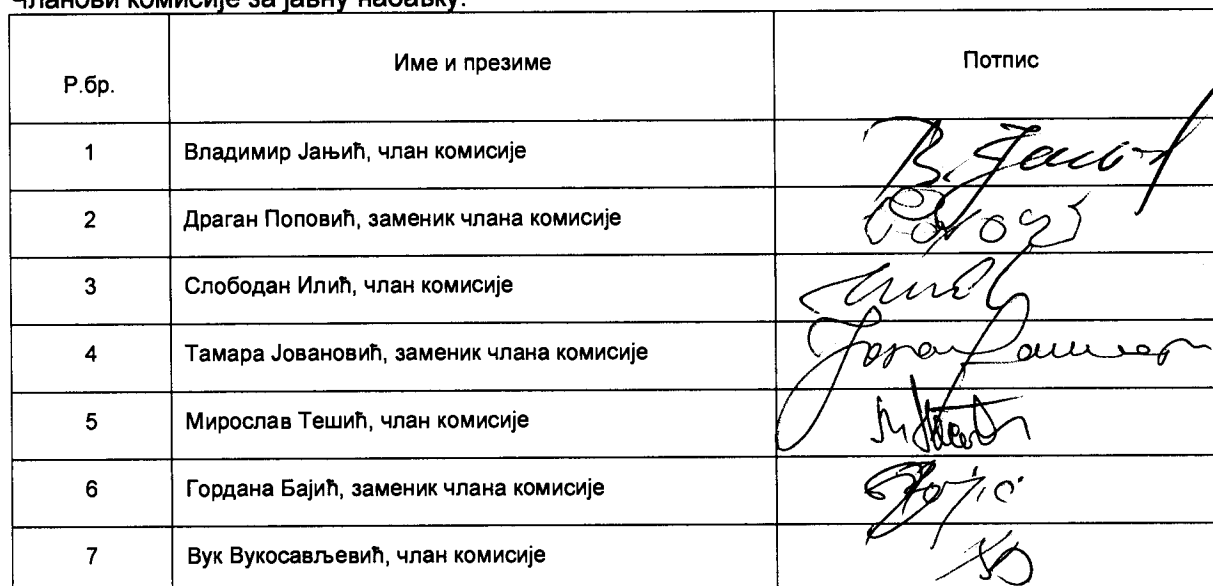 Чланови комисије за јавну набавку:
Р.бр. Име и презиме Потпис
1 Владимир Јањић, члан комисије
2 Драган Поповић, заменик члана комисије
3 Слободан Илић, члан комисије
4 Тамара Јовановић, заменик члана комисије
5 Мирослав Тешић, члан комисије
6 Гордана Бајић, заменик члана комисије
7 Вук Вукосављевић, члан комисије